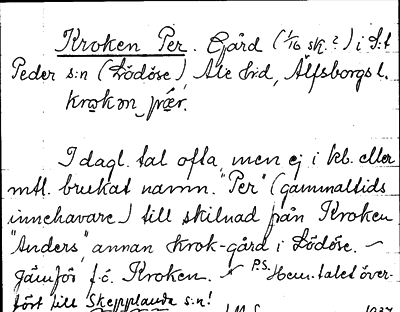 Kroken Per. Gård (1/16 sk.?) i S:t
Peder s:n (Lödöse), Ale hd, Älfsborgs l.
krokən pær.
I dagl. tal ofta, men ej i kb. eller
mtl. brukat namn. "Per" (gammaltids
innehavare) till skilnad från Kroken
"Anders", annan Krok-gård i Lödöse. –
Jämför f.ö. Kroken. – P.S. Hem.talet över-
fört till Skepplanda s:n!
1937